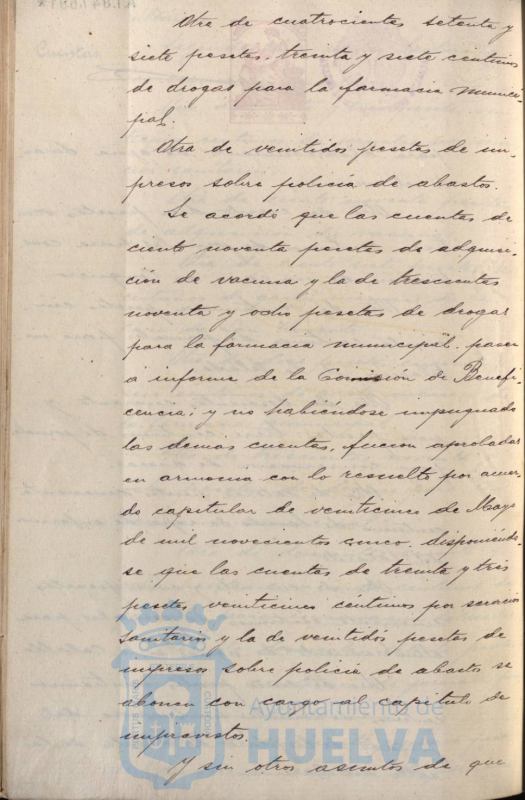 Otra de cuatrocientas setenta y
siete pesetas, treinta y siete centimos
de drogas para la farmacia munici
pal.
Otra de veintidos pesetas de im-
presos sobre policia de abastos.
Se acordó que las cuentas de
ciento noventa pesetas de adquisi-
ción de vacuna y la de trescientas
noventa y ocho pesetas de drogas
para la farmacia municipal, pasen
á informe de la Comisión de Benefi
cencia; y no habiéndose impugnado
las demas cuentas, fueron aprobadas
en armonia con lo resuelto por acuer-
do capitular de veinticinco de Mayo
de mil novecientos cinco, disponiéndo-
se que las cuentas de treinta y tres
pesetas veinticinco céntimos por servicios
sanitarios y la de veintidós pesetas de
impresos sobre policia de abastos se
abonen con cargo al capitulo de
imprevistos.
Y sin otros asuntos de que
Ayuntamiento de
HUELVA